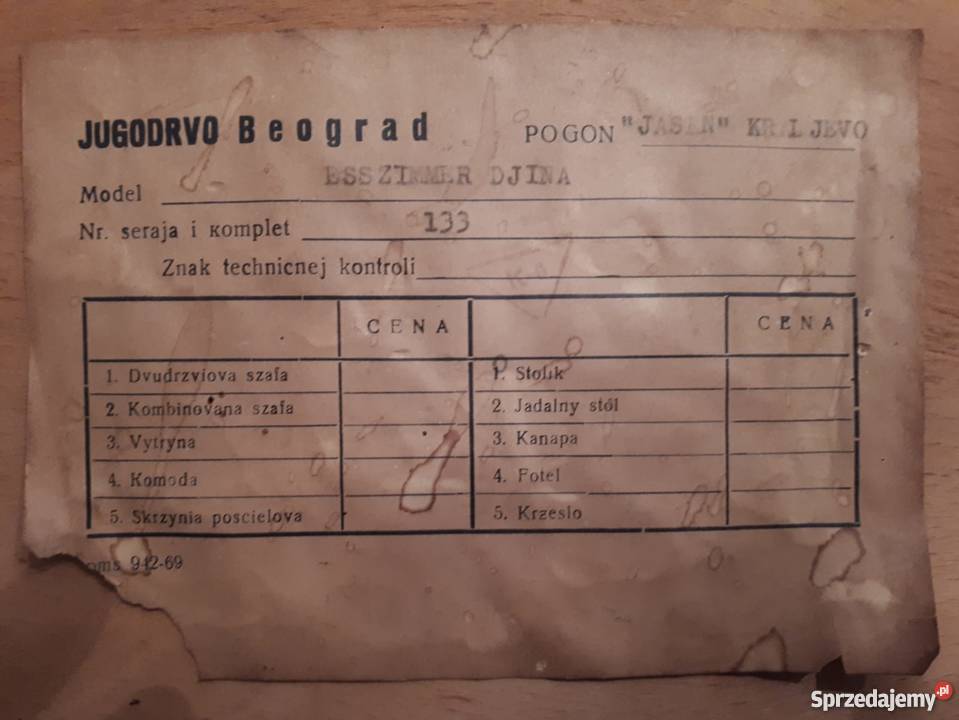 JUGODRVO Beograd POGON "JASEN" KRALJEVO
Model ESSZIMMER DJINA
Nr. seraja i komplet 133
Znak technicnej kontroli
CENA CENA
1. Dvudrzviova szafa 1. Stolik
2. Kombinovana szafa 2. Jadalny stól
3. Vytryna 3. Kanapa
4. Komoda 4. Fotel
5. Skrzynia poscielova 5. Krzeslo
oms 942-69
Sprzedajemy.pl